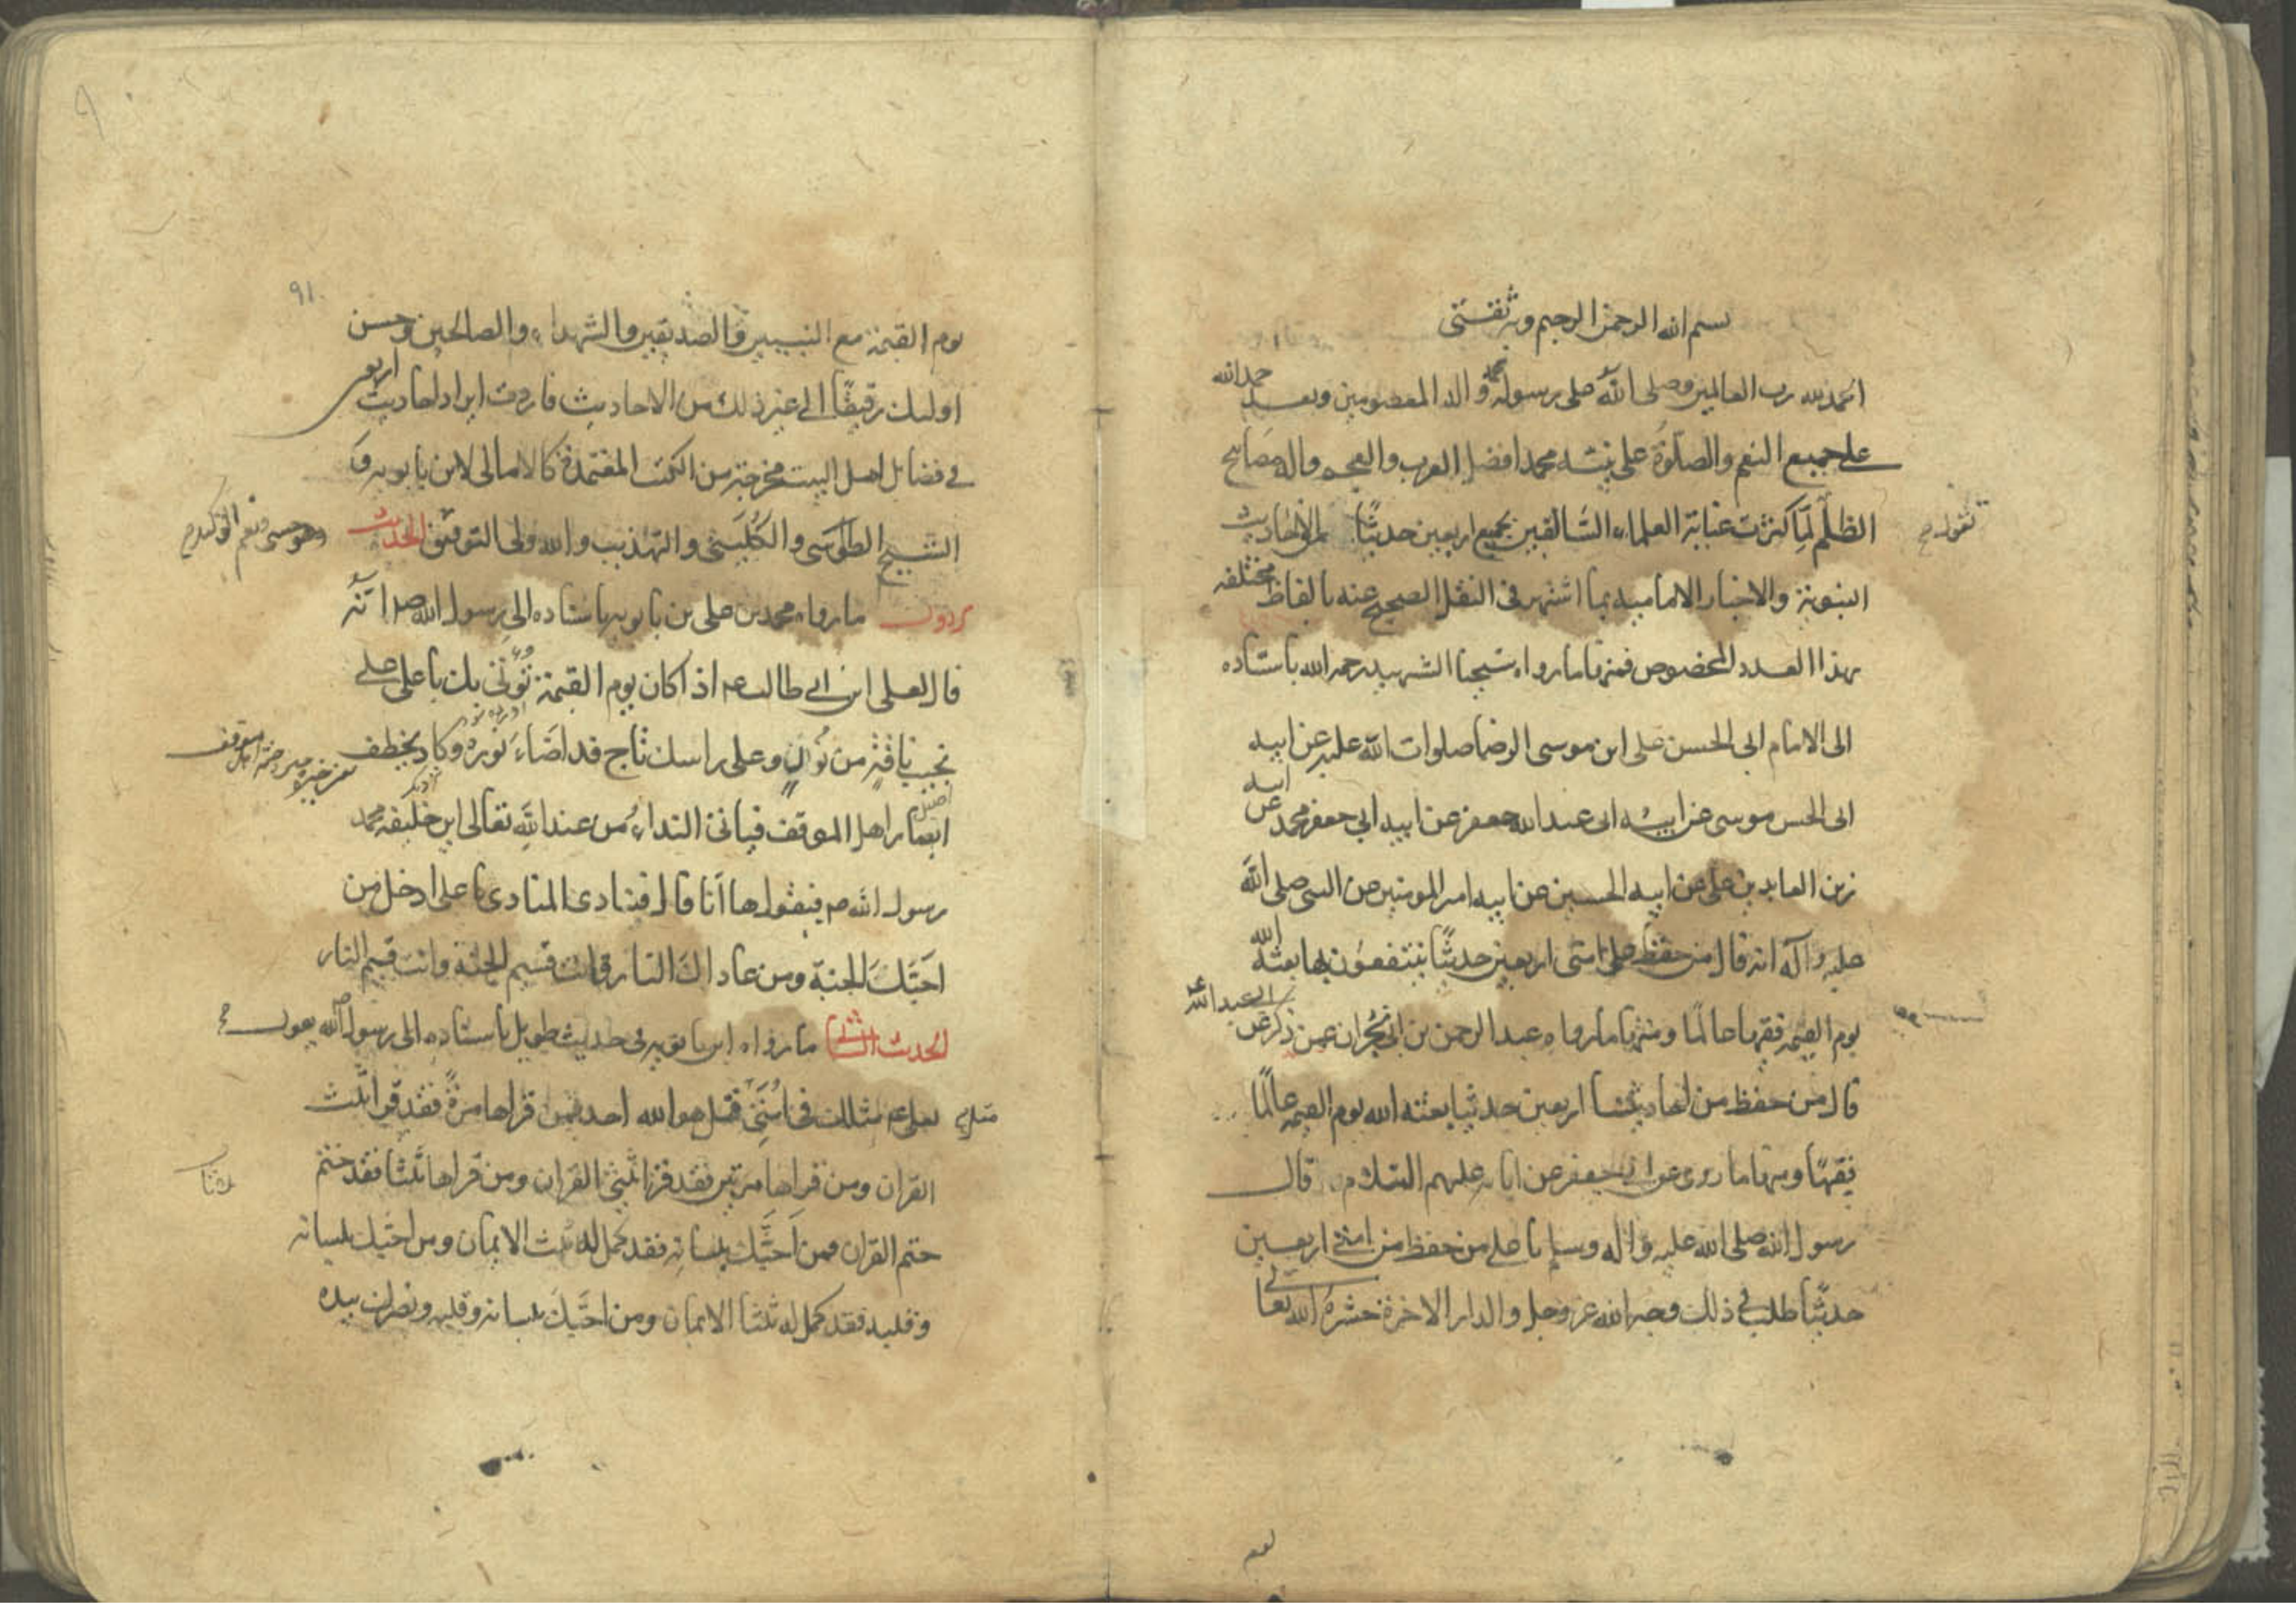 بسم الله الرحمن الرحيم وبه ثقتي
الحمد لله رب العالمين وصلى الله على رسوله محمد واله المعصومين وبعد حمد الله
على جميع النعم والصلوة على نبيه محمد افضل العرب والعجم واله مصابيح
الظلم لما كثرت عناية العلماء السالفين بجمع اربعين حديثا من الاحاديث
النبوية والاخبار الامامية بما اشتهر في النقل الصحيح عنه بالفاظ مختلفه
بهذا العدد المخصوص فمنها ما رواه شيخنا الشهيد رحمه الله باسناده
الى الامام ابى الحسن على ابن موسى الرضا صلوات الله عليه عن ابيه
ابى الحسن موسى عن ابيه ابى عبد الله جعفر عن ابيه ابي جعفر محمد عن ابيه
زين العابدين على عن ابيه الحسين عن ابيه امير المومنين عن النبى صلى الله
عليه وآله انه قال من حفظ على امتى اربعين حديثا ينتفعون بها بعثه الله
يوم القيمه فقيها عالما ومنها ما رواه عبد الرحمن بن ابى نجران عمن ذكره عن ابي عبد الله ع
قال من حفظ من احاديثنا اربعين حديثا بعثه الله يوم القيمه عالما
فقيها ومنها ما روى عن ابى جعفر عن ابائه عليهم السلام قال
رسول الله صلى الله عليه واله وسلم يا على من حفظ من امتى اربعين
حديثا طلب فى ذلك وجه الله عز وجل والدار الاخرة حشره الله تعالى
يوم
٩١
يوم القيمة مع النبيين والصديقين والشهداء والصالحين وحسن
اولئك رفيقا الى غير ذلك من الاحاديث فاردت ايراد احاديث اربعين
فى فضايل اهل البيت مخرجة من الكتب المعتمدة كالامالى لابن بابويه و
الشيخ الطوسى والكلينى والتهذيب والله ولى التوفيق الحديث
ما رواه محمد بن على بن بابويه باسناده الى رسول الله ص انه
قال لعلى ابن ابى طالب ع اذا كان يوم القيمة تؤتى بك يا على على
ناقة من نور وعلى راسك تاج قد اضاء نوره وكاد يخطف
ابصار اهل الموقف فياتى النداء من عند الله تعالى اين خليفه محمد
رسول الله ص فيقول ها انا قال فينادى المنادى يا على ادخل من
احبك الجنة ومن عاداك النار فانت قسيم الجنة وانت قسيم النار
الحديث الثانى ما رواه ابن بابويه فى حديث طويل باسناده الى رسول الله ص
لعلى ع مثلك فى امتى قل هو الله احد فمن قراها مرة فقد قرا ثلث
القران ومن قراها مرتين فقد قرا ثلثى القران ومن قراها ثلثا فقد ختم
ختم القران فمن احبك بلسانه فقد كمل له ثلث الايمان ومن احبك بلسانه
وقلبه فقد كمل له ثلثا الايمان ومن احبك بلسانه وقلبه ونصرك بيده